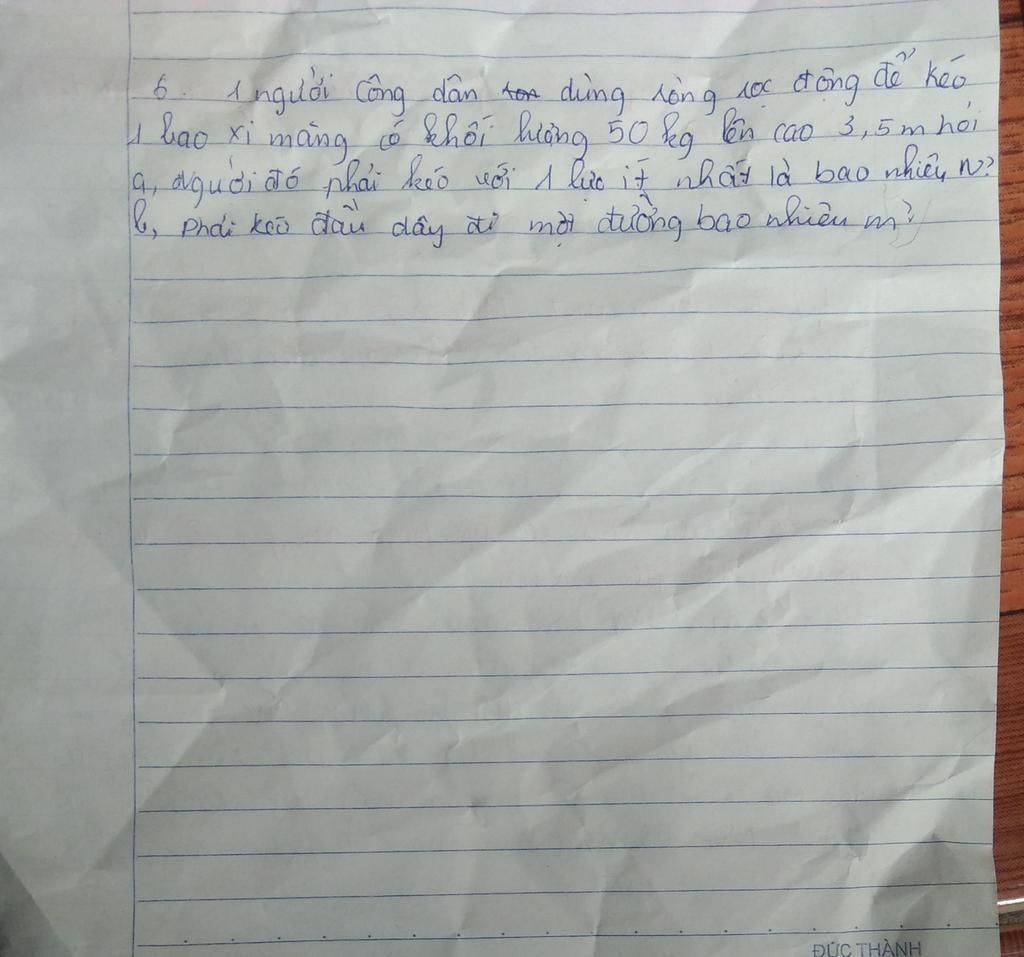 6. 1 người công dân dùng ròng rọc động để kéo
1 bao xi măng có khối lượng 50 kg lên cao 3,5 m hỏi
a, Người đó phải kéo với 1 lực ít nhất là bao nhiêu N?
b, Phải kéo đầu dây đi một đường bao nhiêu m?
ĐỨC THÀNH